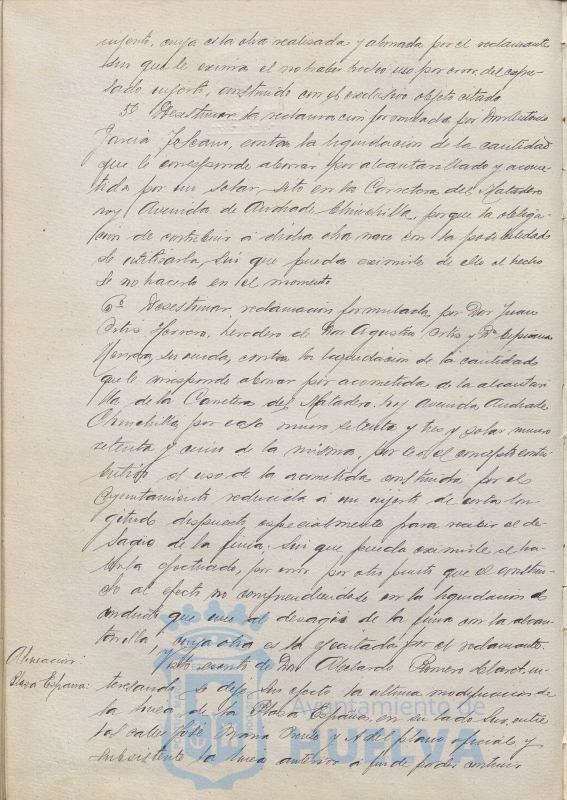 injerto, cuya es la obra realizada y abonada por el reclamante
sin que le exima el no haber hecho uso por error del expre-
sado injerto, construido con el exclusivo objeto citado.
5º Desestimar la reclamacion formulada por Don Antonio
Garcia contra la liquidacion de la cantidad
que le corresponde abonar por alcantarillado y acome-
tida por un solar, sito en la Carretera del Matadero
hoy Avenida de Andrade Chinchilla, porque la obliga-
cion de contribuir á dicha obra nace con la posibilidad
de utilizarla, sin que pueda eximirle de ello el hecho
de no hacerlo en el momento
6º Desestimar reclamacion formulada, por Don Juan
Ortiz Herrero, heredero de Don Agustin Ortiz y Dª Cipriana
su viuda, contra la liquidacion de la cantidad
que le corresponde abonar por acometida de la alcantari-
lla de la Carretera del Matadero hoy Avenida Andrade
Chinchilla, por casa numero setenta y tres y solar numero
setenta y cinco de la misma, por ser el concepto contri-
butivo el uso de la acometida construida por el
Ayuntamiento reducida á un injerto de corta lon-
gitud dispuesto especialmente para recibir el de-
sagüe de la finca. Sin que pueda eximirle el ha-
berla efectuado, por error por otro punto que el construi-
do al efecto no comprendiendose en la liquidacion el
conducto que une el desagüe de la finca con la alcan-
tarilla, cuya obra es la ejecutada por el reclamante.
Alineacion: Visto escrito de Don Abelardo Romero Claret in-
Plaza España: teresando se deje sin efecto la ultima modificacion de
la linea de la Plaza España, en su lado Sur, entre
las calles José y A del plano oficial y
subsistente la linea anterior á fin de poder construir
Ayuntamiento de
HUELVA